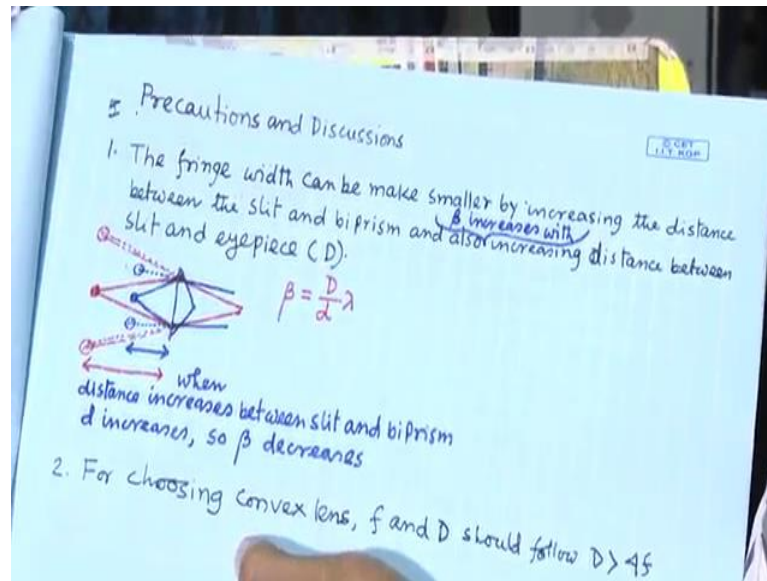 I. Precautions and Discussions
© CET
I.I.T. KGP
1. The fringe width can be make smaller by increasing the distance
between the slit and biprism and also increasing distance between
β increases with
slit and eyepiece (D).
β = D/d λ
when
distance increases between slit and biprism
d increases, so β decreases
2. For choosing convex lens, f and D should follow D > 4f